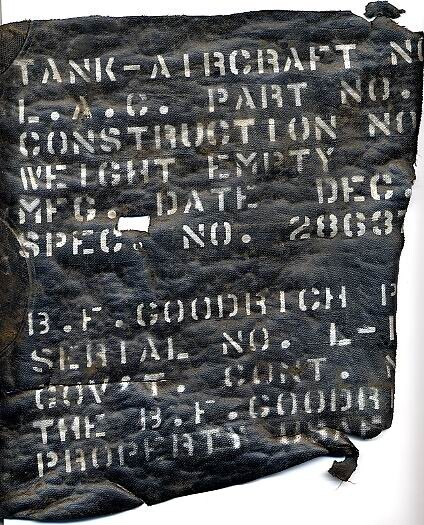 TANK-AIRCRAFT NO
L.A.C. PART NO.
CONSTRUCTION NO
WEIGHT EMPTY
MFG. DATE DEC.
SPEC. NO. 28687
B.F.GOODRICH P
SERIAL NO. L-1
GOV'T. CONT. N
THE B.F.GOODR
PROPERTY